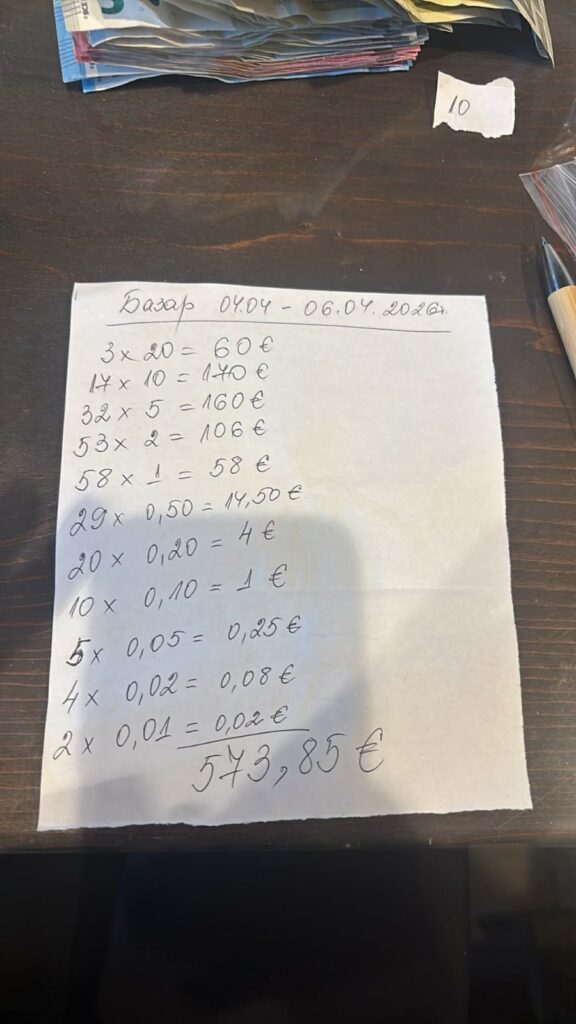 10
Базар 04.04 - 06.04.2026г.
3 x 20 = 60 €
17 x 10 = 170 €
32 x 5 = 160 €
53 x 2 = 106 €
58 x 1 = 58 €
29 x 0,50 = 14,50 €
20 x 0,20 = 4 €
10 x 0,10 = 1 €
5 x 0,05 = 0,25 €
4 x 0,02 = 0,08 €
2 x 0,01 = 0,02 €
573,85 €